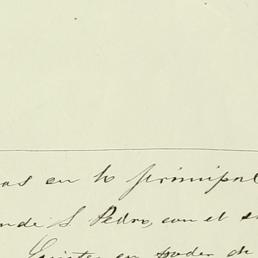 as en lo principal
nde S. Pedro, con el
Existe en poder de